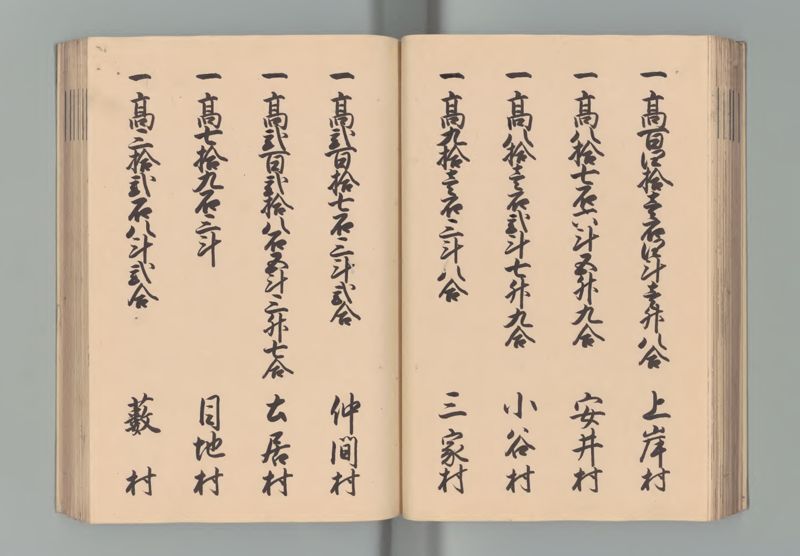 一高百四拾壱石四斗壱升八合 上岸村
一高八拾七石六斗五升九合 安井村
一高八拾壱石弐斗七升九合 小谷村
一高九拾壱石三斗八合 三家村
一高弐百拾七石三斗弐合 仲間村
一高弐百弐拾八石五斗三升七合 土居村
一高七拾九石三斗 目地村
一高三拾弐石八斗弐合 藪村